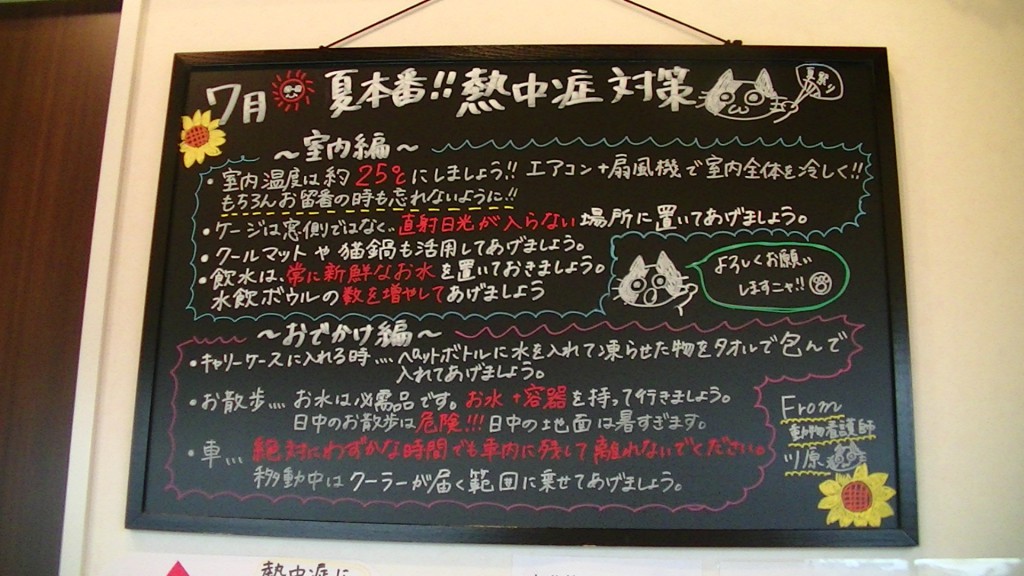 7月 夏本番!! 熱中症対策
～室内編～
・室内温度は約25℃にしましょう!! エアコン+扇風機で室内全体を冷しく!!
もちろんお留番の時も忘れないように!!
・ケージは窓側ではなく、直射日光が入らない場所に置いてあげましょう。
・クールマットや猫鍋も活用してあげましょう。
・飲水は、常に新鮮なお水を置いておきましょう。
水飲ボウルの数を増やしてあげましょう
よろしくお願い
しますニャ!!
～おでかけ編～
・キャリーケースに入れる時…、ペットボトルに水を入れて凍らせた物をタオルで包んで
入れてあげましょう。
・お散歩…、お水は必需品です。お水+容器を持って行きましょう。
日中のお散歩は危険!!! 日中の地面は暑すぎます。
・車…、絶対にわずかな時間でも車内に残して離れないでください。
移動中はクーラーが届く範囲に乗せてあげましょう。
From
動物看護師
川原
熱中症に